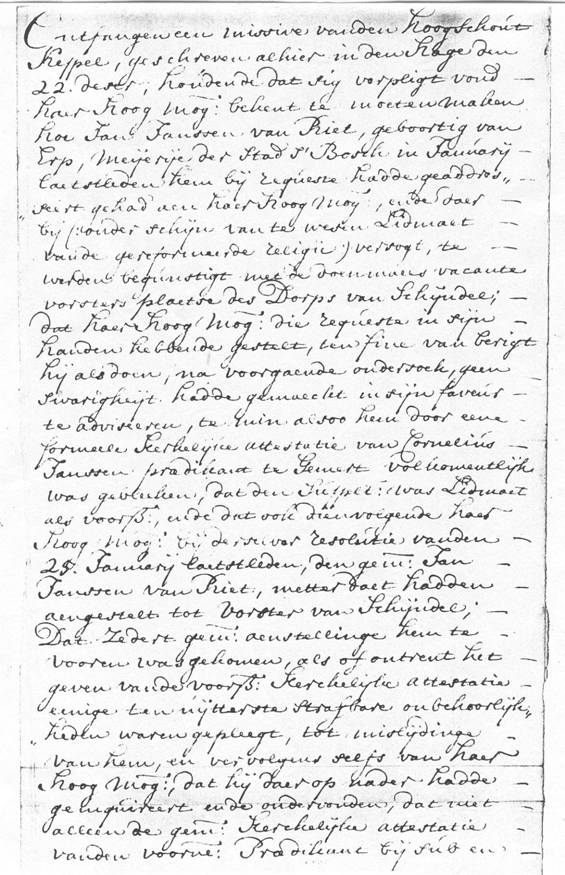 Entfangen een missive vanden Hoogschout
Keppel, geschreven alhier inden Hage den
22 deser, houdende dat sig verpligt vond
haer Hoog Mog: bekent te moeten maken
hoe Jan Janssen van Riet, geboortig van
Erp, Meijerije der Stad s' Bosch in January
laetstleden hem bij requeste hadde geaddres„
„seert gehad aen haer Hoog Mog:, ende daer
bij (: onder schijn van te wesen Lidmaet
vande gereformeerde religie) versogt, te
werden begunstigt met de doenmaels vacante
vorsters plaetse des Dorps van Schijndel;
dat haer Hoog Mog: die requeste in sijn
handen hebbende gestelt, ten fine van berigt
hij als doen, na voorgaende ondersoek, geen
swarigheijt hadde gemaeckt in sijn faveur
te adviseeren, te min alsoo hem door eene
formeele Kerkelijke attestatie van Cornelius
Janssen prædikant te Gemert volkomentlijk
was gebleken, dat den Suppl:t was Lidmaet
als voorsz:, ende dat ook dien volgende haer
Hoog Mog: bij derselver resolutie vanden
25. January laetstleden, den gem: Jan
Janssen van Riet, metter daet hadden
aengestelt tot Vorster van Schijndel;
Dat zedert gem: aenstellinge hem te
vooren was gekomen, als of ontrent het
geven vande voorsz: Kerckelijke attestatie
eenige ten uijtterste strafbare onbehoorlijk„
„heden waren gepleegt, tot misleijdinge
van hem, en vervolgens selfs van haer
Hoog Mog:, dat hij daer op nader hadde
geinquireert ende ondervonden, dat niet
alleen de gem: Kerckelijke attestatie
vanden voorn: Prædikant bij sub en